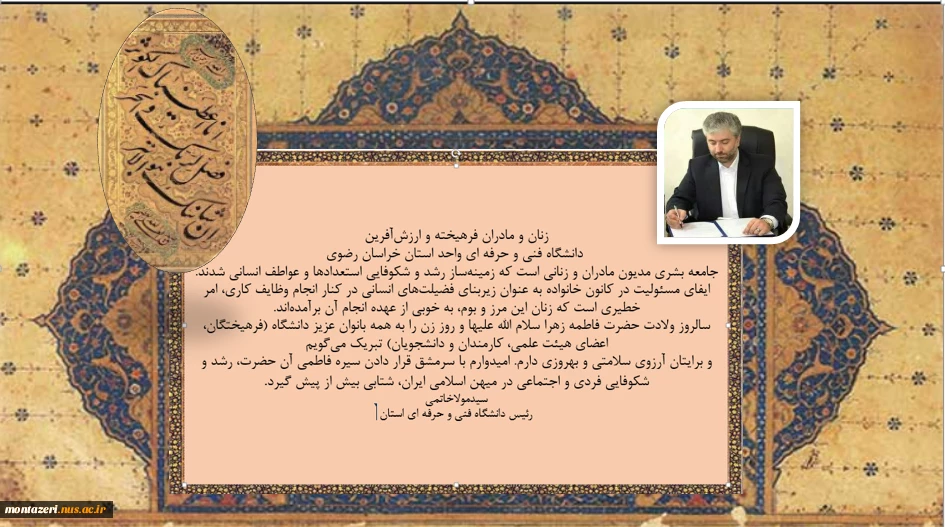 انا اعطیناک الکوثر
فصل لربک و انحر
ان شانئک هو الابتر
زنان و مادران فرهیخته و ارزش‌آفرین
دانشگاه فنی و حرفه ای واحد استان خراسان رضوی
جامعه بشری مدیون مادران و زنانی است که زمینه‌ساز رشد و شکوفایی استعدادها و عواطف انسانی شدند.
ایفای مسئولیت در کانون خانواده به عنوان زیربنای فضیلت‌های انسانی در کنار انجام وظایف کاری، امر
خطیری است که زنان این مرز و بوم، به خوبی از عهده انجام آن برآمده‌اند.
سالروز ولادت حضرت فاطمه زهرا سلام الله علیها و روز زن را به همه بانوان عزیز دانشگاه (فرهیختگان،
اعضای هیئت علمی، کارمندان و دانشجویان) تبریک می‌گویم
و برایتان آرزوی سلامتی و بهروزی دارم. امیدوارم با سرمشق قرار دادن سیره فاطمی آن حضرت، رشد و
شکوفایی فردی و اجتماعی در میهن اسلامی ایران، شتابی بیش از پیش گیرد.
سیدمولاخاتمی
رئیس دانشگاه فنی و حرفه ای استان
montazeri.nus.ac.ir